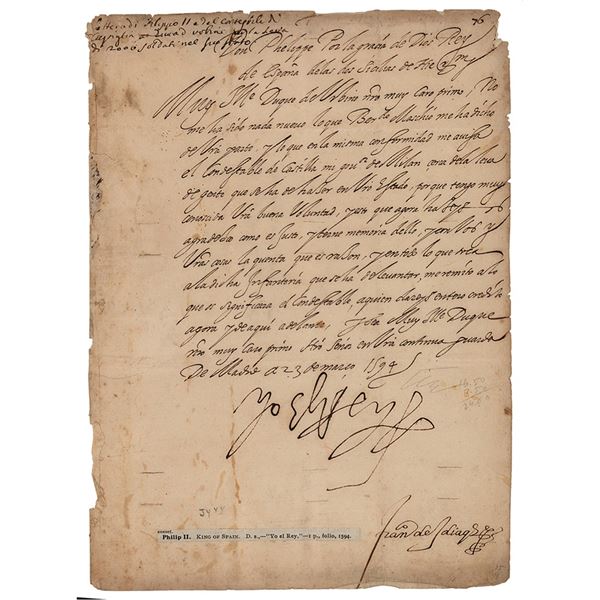 Lettera di Filippo II e del Contestabile di
Castiglia al Duca d'Urbino per la Leva
di 2000 soldati nel suo stato
76
Don Phelippe Por la graçia de Dios Rey
de España delas dos Sicilias de Hierm
Muy Ill.e Duque de Urbino nro muy Caro primo; No
me ha sido nada nuevo lo que Ber.do Maschio me ha dicho
de Vra parte, y lo que en la misma conformidad me avisa
el Condestable de Castilla mi gov.or de Milan, çerca dela leva
de gente que se ha de hazer en Vro Estado, porque tengo muy
conoscida Vra buena Voluntad, y esto que agora hazeys os
agradesco como es justo, y terne memoria dello, y con Vos y
Vras cosas la quenta que es razon, y en todo lo que toca
a la dicha Infanteria que se ha de levantar, me remito a lo
que os significara el Condestable, a quien dareys entero credito
agora y de aqui adelante, y sea Muy Ill.e Duque
nro muy Caro primo Nro Señor en Vra continua guarda
De Madrid a 23 de março 1594
Yo El Rey
J444
Philip II. King of Spain. D. s.,—"Yo el Rey,"—1 p., folio, 1594.
Fran.co de Idiaquez